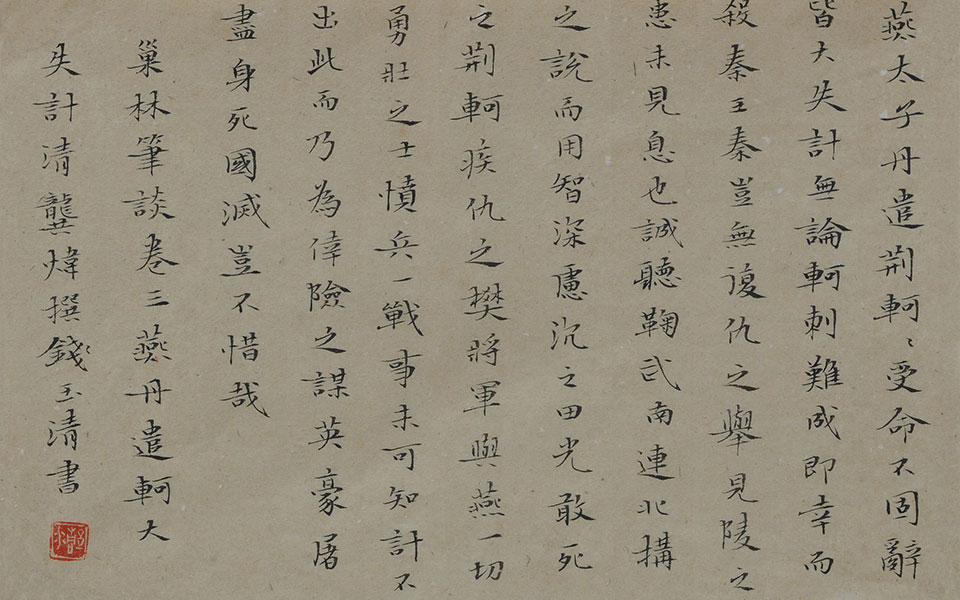 燕太子丹遣荊軻〻受命不固辭
皆大失計無論軻刺難成即幸而
殺秦王秦豈無復仇之舉見陵之
患未見息也誠聽鞠武南連北搆
之說而用智深慮沉之田光敢死
之荊軻疾仇之樊將軍與燕一切
勇壯之士憤兵一戰事未可知計不
出此而乃為倖險之謀英豪屠
盡身死國滅豈不惜哉
巢林筆談卷三燕丹遣軻大
失計清龔煒撰錢玉清書